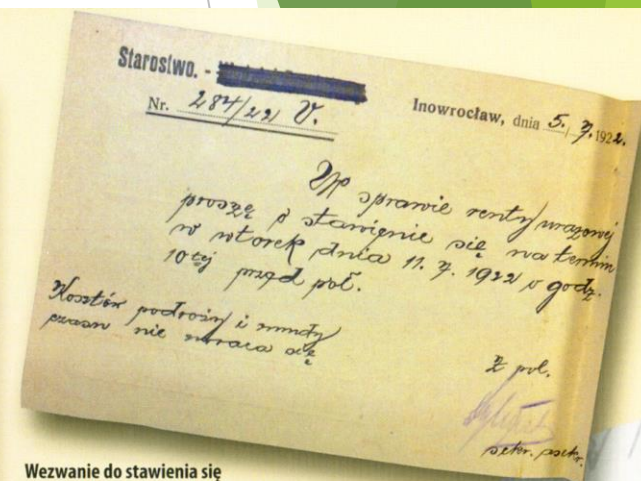 Starostwo. -
Nr. 284/22 V.
Inowrocław, dnia 5. / 7. 1922.
W sprawie renty urazowej
proszę o stawienie się na termin
w wtorek dnia 11. 7. 1922 o godz.
10tej przed poł.
Kosztów podróży i
czasu nie zwraca się
Z pol.
sekr.
Wezwanie do stawienia się